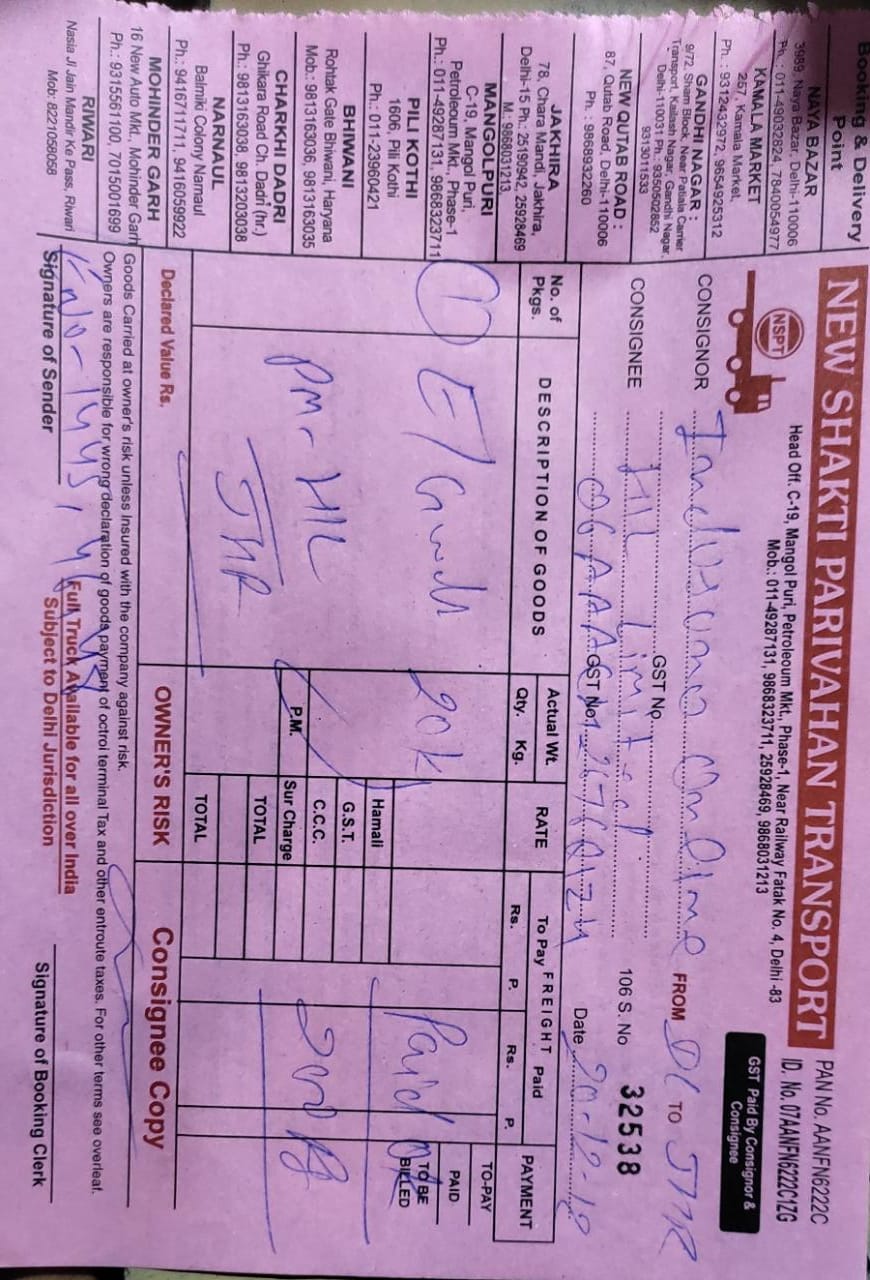 Booking & Delivery
Point
NAYA BAZAR
3989, Naya Bazar, Delhi-110006
Ph. : 011-49032824, 7840054977
KAMALA MARKET
257, Kamala Market,
Ph. : 9312432972, 9654925312
GANDHI NAGAR :
9/72, Sham Block, Near Patiala Carrier
Transport, Kailash Nagar, Gandhi Nagar,
Delhi-110031 Ph.: 9350502852
9313011533
NEW QUTAB ROAD :
87, Qutab Road, Delhi-110006
Ph. : 9868932260
JAKHIRA
78, Chara Mandi, Jakhira,
Delhi-15 Ph.: 25190942, 25928469
M.: 9868031213,
MANGOLPURI
C-19, Mangol Puri,
Petroleoum Mkt., Phase-1
Ph.: 011-49287131, 9868323711
PILI KOTHI
1606, Pili Kothi
Ph.: 011-23960421
BHIWANI
Rohtak Gate Bhiwani, Haryana
Mob.: 9813163036, 9813163035
CHARKHI DADRI
Ghikara Road Ch. Dadri (hr.)
Ph.: 9813163038, 9813203038
NARNAUL
Balmiki Colony Narnaul
Ph.: 9416711711, 9416059922
MOHINDER GARH
16 New Auto Mkt., Mohinder Garh
Ph.: 9315561100, 7015001699
RIWARI
Nasia Ji Jain Mandir Ke Pass, Riwari
Mob: 8221058058
NEW SHAKTI PARIVAHAN TRANSPORT
PAN No. AANFN6222C
ID. No. 07AANFN6222C1ZG
NSPT
Head Off. C-19, Mangol Puri, Petroleoum Mkt., Phase-1, Near Railway Fatak No. 4, Delhi -83
Mob.: 011-49287131, 9868323711, 25928469, 9868031213
GST Paid By Consignor &
Consignee
CONSIGNOR FROM DL TO JHR
GST No.
CONSIGNEE HIL Limited 106 S. No 32538
GST No. Date 20-12-19
No. of Pkgs.
DESCRIPTION OF GOODS
Actual Wt.
Qty. Kg.
RATE
FREIGHT
To Pay Paid
Rs. P. Rs. P.
PAYMENT
TO-PAY
PAID
TO BE
BILLED
1 E/Goods 20K Paid
PM- HIL
JHR
Hamali
G.S.T.
C.C.C.
P.M.
Sur Charge
TOTAL
TOTAL
Declared Value Rs.
OWNER'S RISK
Consignee Copy
Goods Carried at owner's risk unless Insured with the company against risk.
Owners are responsible for wrong declaration of goods payment of octroi terminal Tax and other entroute taxes. For other terms see overleaf.
Signature of Sender
Full Truck Available for all over India
Subject to Delhi Jurisdiction
Signature of Booking Clerk